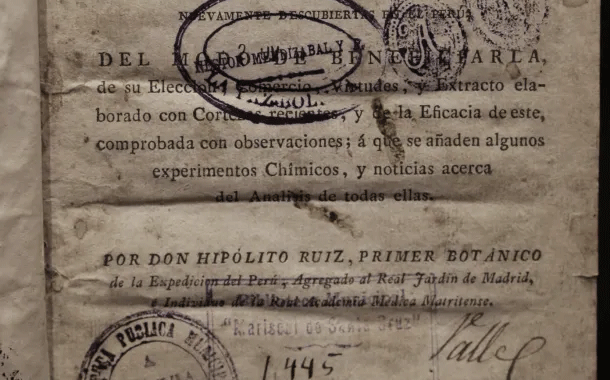 NUEVAMENTE DESCUBIERTAS EN EL PERÚ
DEL MODO DE BENEFICIARLA,
de su Eleccion, Comercio, Virtudes, y Extracto ela-
borado con Cortezas recientes, y de la Eficacia de este,
comprobada con observaciones; á que se añaden algunos
experimentos Chîmicos, y noticias acerca
del Analisis de todas ellas.
POR DON HIPÓLITO RUIZ, PRIMER BOTÁNICO
de la Expedicion del Perú, Agregado al Real Jardin de Madrid,
é Individuo de la Real Academia Médica Matritense.
"Mariscal de Santa Cruz"
PUBLICA
1.445
Valle